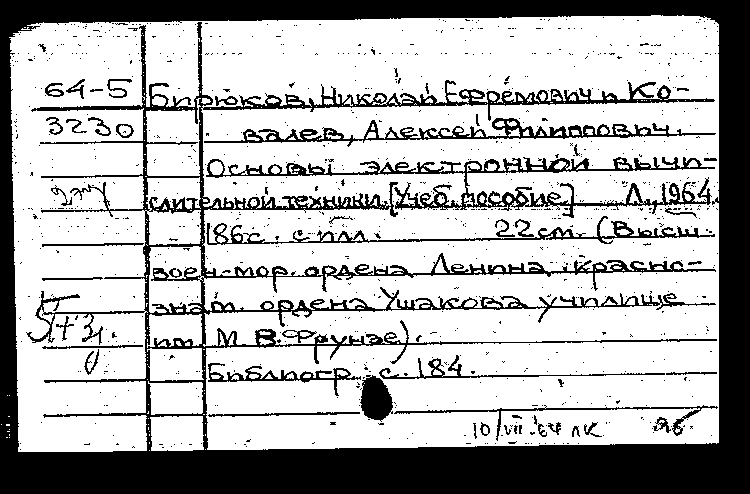 64-5 Бирюков, Николай Ефремович и Ко-
3230 валев, Алексей Филиппович.
Основы электронной вычи-
слительной техники. [Учеб. пособие] Л., 1964.
186с. с илл. 22см. (Высш.
воен.-мор. ордена Ленина, красно-
знам. ордена Ушакова училище
им. М. В. Фрунзе).
Библиогр. с. 184.
10/VII-64 лк